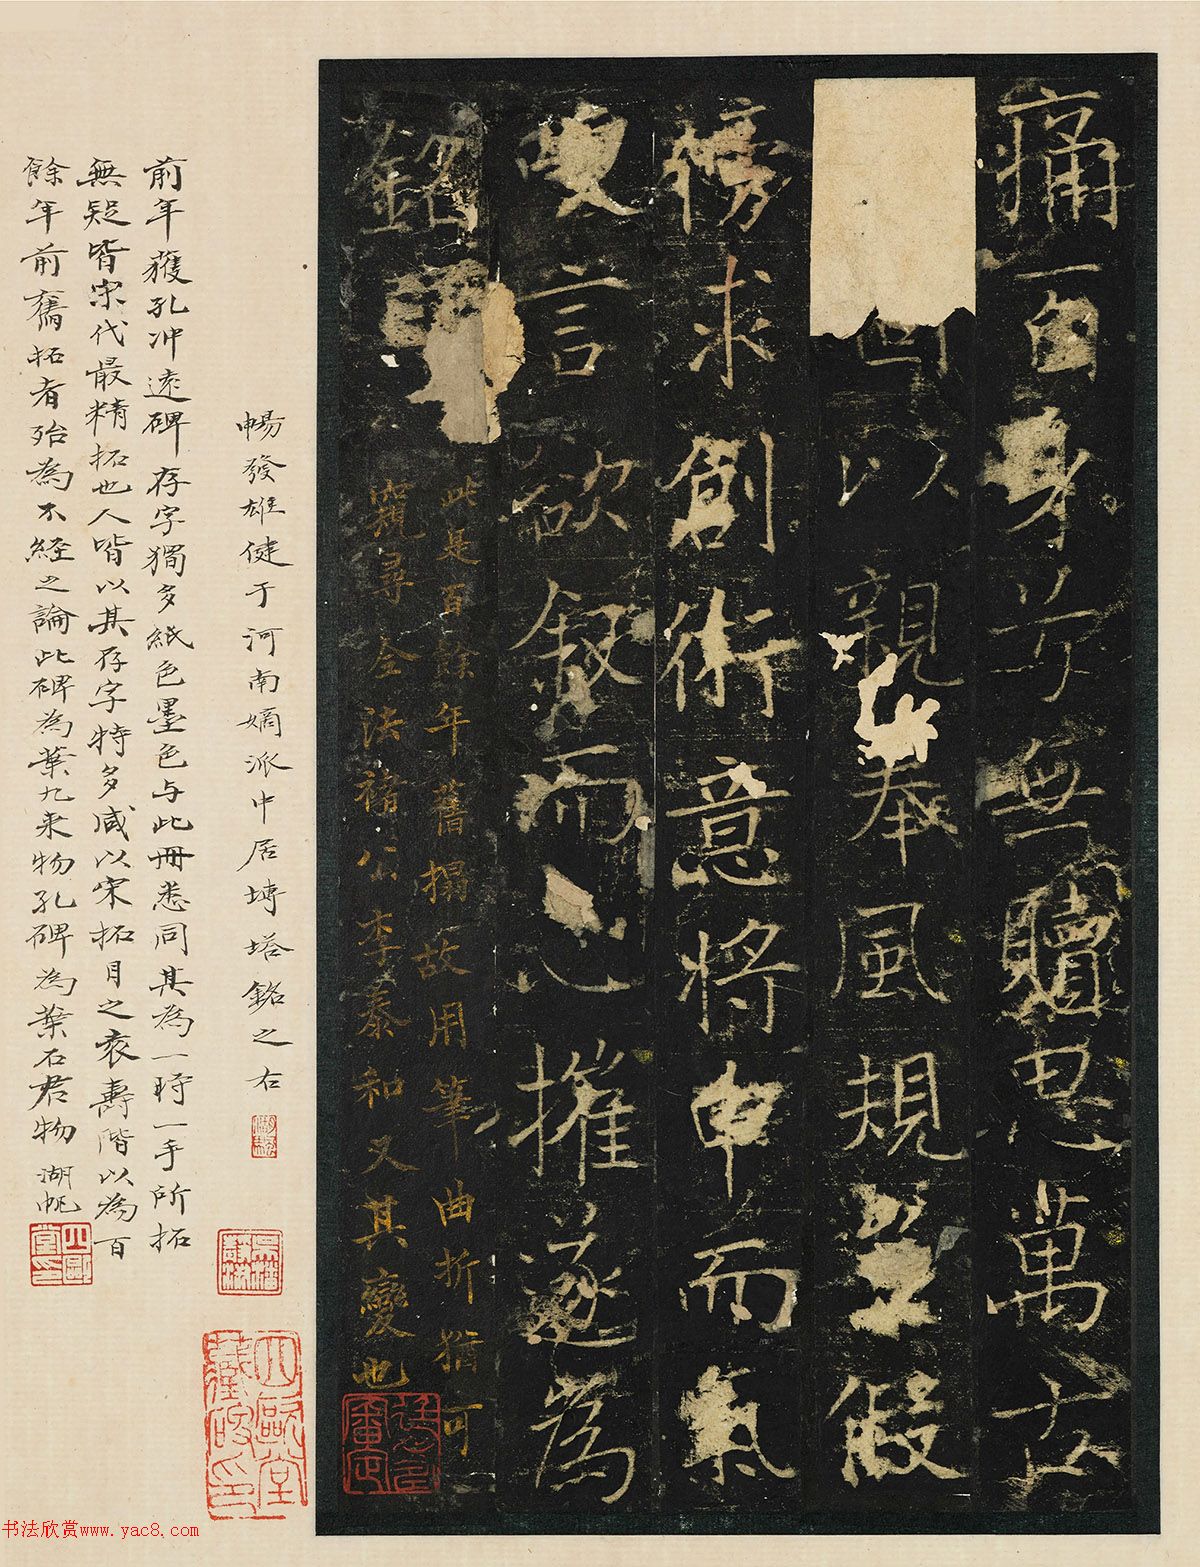 痛百身兮無贖思萬古
以親奉風規異假
傍求創術意將申而氣
叟言欲敍而心摧遂為
銘曰
此是百餘年舊搨故用筆曲折猶可
窺尋全法褚公李泰和又其變也
暢發雄健于河南嫡派中居塼塔銘之右
前年獲孔沖遠碑存字獨多紙色墨色与此冊悉同其為一時一手所拓
無疑皆宋代最精拓也人皆以其存字特多咸以宋拓目之袁壽階以為百
餘年前舊拓者殆為不經之論此碑為葉九来物孔碑為葉石君物 湖帆
四歐堂藏
书法欣赏www.yac8.com